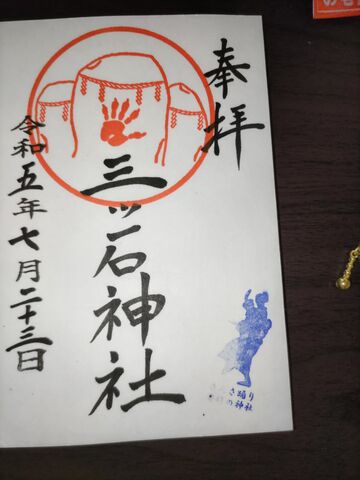 奉拝
三ツ石神社
令和五年七月二十三日
さんさ踊り
の神社